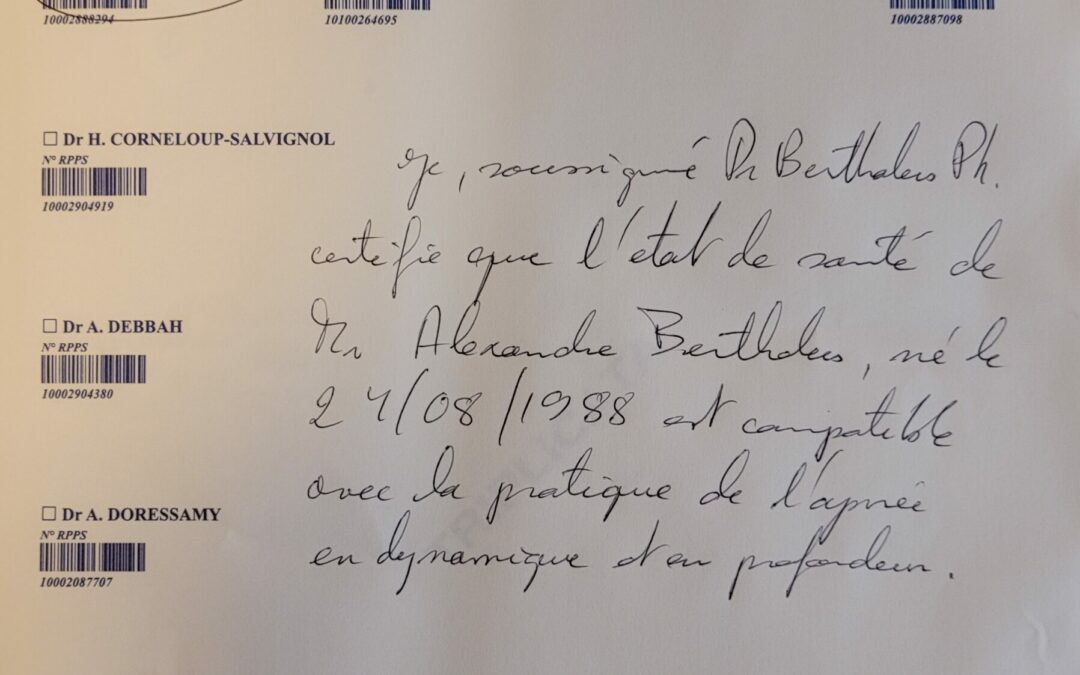 10002888294
10100264695
10002887098
☐ Dr H. CORNELOUP-SALVIGNOL
N° RPPS
10002904919
☐ Dr A. DEBBAH
N° RPPS
10002904380
☐ Dr A. DORESSAMY
N° RPPS
10002087707
Je, soussigné Pr Berthelus Ph.
certifie que l'état de santé de
Mr Alexandre Berthelus, né le
24/08/1988 est compatible
avec la pratique de l'apnée
en dynamique et en profondeur.